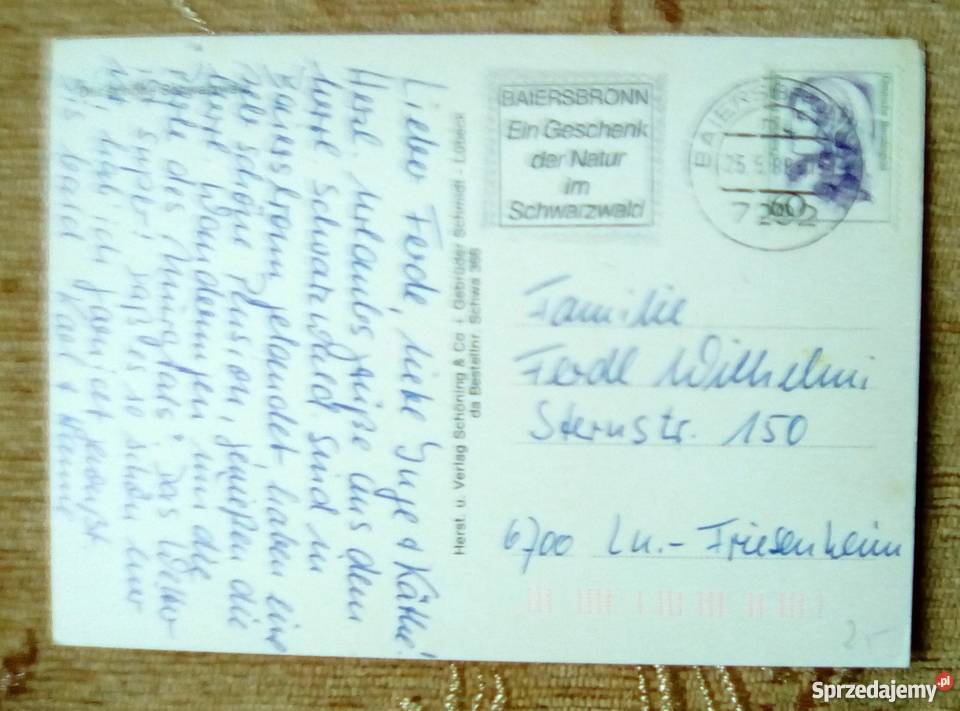 Liebe Ferde, liebe Inge & Käthe!
Herzl. Urlaubsgrüße aus dem
schwarzwald. Sind in
Baiersbronn gelandet. haben eine
schöne Pension, genießen die
Wandrungen um die
des Murgtals. Das Wetter
ist Super; daß es so schön hier
ist habe ich gar nicht gewußt.
Bis bald Karl &
Herst. u. Verlag Schöning & Co + Gebrüder Schmidt - Lübeck
da Bestellnr. Schwa 366
BAIERSBRONN
Ein Geschenk
der Natur
im
Schwarzwald
BAIERSBRONN
25.5.88
60
Familie
Ferdl Wilhelm
Sternstr. 150
6700 Lu.-Friesenheim
2,-
Sprzedajemy.pl